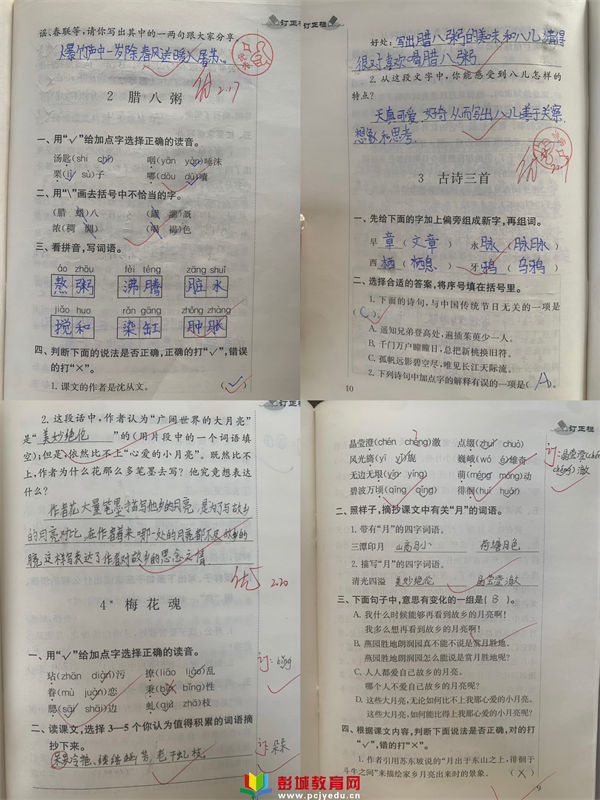 订正栏
谣、春联等,请你写出其中的一两句跟大家分享。
爆竹声中一岁除春风送暖入屠苏。
2 腊八粥
一、用“√”给加点字选择正确的读音。
汤匙(shi chí) 咽(yān yàn)唾沫
栗(lì sù)子 嘟(dōu dū)囔
二、用“\”画去括号中不恰当的字。
(腊 蜡)八
浓(稠 凋) (褐 楬)色
三、看拼音,写词语。
áo zhōu fèi téng zāng shuǐ
熬粥 沸腾 脏水
jiǎo huo rǎn gāng zhǒng zhàng
搅和 染缸 肿胀
四、判断下面的说法是否正确,正确的打“√”,错误
的打“×”。
1. 课文的作者是沈从文。 (√)
订正栏
好处:写出腊八粥的美味和八儿
很对喜欢喝腊八粥
2. 从这段文字中,你能感受到八儿怎样的
特点?
天真可爱、好奇,从而写出八儿善于观察、
想象和思考。
3 古诗三首
一、先给下面的字加上偏旁组成新字,再组词。
早 章(文章) 永 脉(脉脉)
西 栖(栖息) 牙 鸦(乌鸦)
二、选择合适的答案,将序号填在括号里。
1. 下面的诗句,与中国传统节日无关的一项是
(C)。
A. 遥知兄弟登高处,遍插茱萸少一人。
B. 千门万户曈曈日,总把新桃换旧符。
C. 孤帆远影碧空尽,唯见长江天际流。
2. 下列诗句中加点字的解释有误的一项是(A)。
10
2. 这段话中,作者认为“广阔世界的大月亮”
是“美妙绝伦”的(用片段中的一个词语填
空);但是,依然比不上“心爱的小月亮”。既然比不
上,作者为什么花那么多笔墨去写?他究竟想表达
什么?
作者花大量笔墨描写他乡的月亮,是为了与故乡
的月亮对比,在作者看来哪一处的月亮都不及故乡的
亮,这样写表达了作者对故乡的思念之情
4* 梅花魂
一、用“√”给加点字选择正确的读音。
玷(zhān diàn)污 撩(liāo liáo)乱
眷(mù juàn)恋 秉(bǐn bǐng)性
腮(sāi shāi)边 虬(qiú zhā)枝
订:bǐng
二、读课文,选择3—5个你认为值得积累的词语摘
抄下来。
订:朵朵
订正栏
晶莹澄(chén chéng)澈 点缀(zhuì chuò)
风光旖(yī yǐ)旎 巍峨(wó é)雄奇
无边无垠(yín yíng) 萌(méng móng)动
碧波万顷(qīng qǐng) 徘徊(huí huái)
订:晶莹澄(chéng)澈
二、照样子,摘抄课文中有关“月”的词语。
1. 带有“月”的四字词语。
三潭印月 山高月小 荷塘月色
2. 描写“月”的四字词语。
清光四溢 美妙绝伦 晶莹澄澈
三、下面句子中,意思有变化的一组是(B)。
A. 我什么时候能够再看到故乡的月亮啊!
我多么想再看到故乡的月亮啊!
B. 燕园胜地朗润园真不能不说是赏月胜地。
燕园胜地朗润园怎么能说是赏月胜地呢?
C. 人人都爱自己故乡的月亮。
哪个人不爱自己故乡的月亮?
D. 这些大月亮,无论如何比不上我那心爱的小月亮。
这些大月亮,如何能比得上我那心爱的小月亮?
四、根据课文内容,判断下面说法是否正确,对的打
“√”,错的打“×”。
1. 作者引用苏东坡说的“月出于东山之上,徘徊于
斗牛之间”来描绘家乡月亮出来时的景象。 (×)
9
彭城教育网
www.pcjyedu.cn